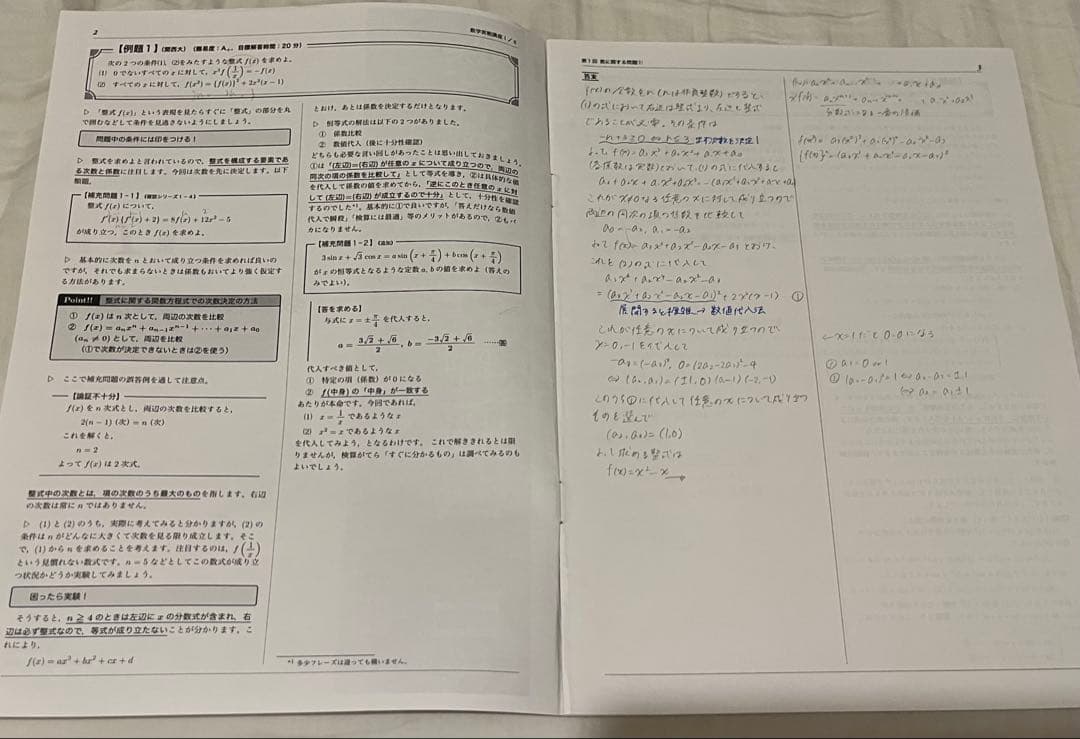 2
数学実戦講座 I / II
【例題1】(関西大)(難易度：A, 目標解答時間：20分)
次の2つの条件(1), (2)をみたすような整式 f(x) を求めよ。
(1) 0でないすべての x に対して, x³f(1/x) = −f(x)
(2) すべての x に対して, f(x²) = {f(x)}² + 2x²(x−1)
▷ 「整式 f(x)」という表現を見たらすぐに「整式」の部分を丸
で囲むなどして条件を見逃さないようにしましょう。
問題中の条件には印をつける！
▷ 整式を求めよと言われているので, 整式を構成する要素であ
る次数と係数に注目します。今回は次数を先に決定します。以下
類題。
【補充問題1-1】
整式 f(x) について,
f'(x){f'(x)+2} = 8f(x)+12x²−5
が成り立つ。このとき f(x) を求めよ。
▷ 基本的に次数を n とおいて成り立つ条件を求めれば良いの
ですが, それでも求まらないときは係数もおいてより強く仮定す
る方法があります。
Point!! 整式に関する関数方程式での次数決定の方法
① f(x) は n 次として, 両辺の次数を比較
② f(x) = aₙxⁿ + aₙ₋₁xⁿ⁻¹ + ・・・ + a₁x + a₀
(aₙ ≠ 0) として, 両辺を比較
(①で次数が決定できないときは②を使う)
▷ ここで補充問題の誤答例を通して注意点。
【論証不十分】
f(x) を n 次式とし, 両辺の次数を比較すると,
2(n−1)(次) = n(次)
これを解くと,
n = 2
よって f(x) は2次式。
整式中の次数とは, 項の次数のうち最大のものを指します。右辺
の次数は常に n ではありません。
▷ (1) と (2) のうち, 実際に考えてみると分かりますが, (2) の
条件は n がどんなに大きくて次数を見る限り成立します。そこ
で, (1) から n を求めることを考えます。注目するのは, f(1/x)
という見慣れない数式です。n = 5 などとしてこの数式が成り立
つ状況かどうか実験してみましょう。
困ったら実験！
そうすると, n ≧ 4 のときは左辺に x の分数式が含まれ, 右
辺は必ず整式なので, 等式が成り立たないことが分かります。こ
れにより,
f(x) = ax³ + bx² + cx + d
とおけ, あとは係数を決定するだけとなります。
▷ 恒等式の解法は以下の2つがありました。
① 係数比較
② 数値代入 (後に十分性確認)
どちらも必要な言い回しがあったことは思い出しておきましょう。
①は「(左辺)=(右辺)が任意の x について成り立つので, 両辺の
同次の項の係数を比較して」として等式を導き, ②は具体的な値
を代入して係数の値を求めてから,「逆にこのとき任意の x に対
して(左辺)=(右辺)が成立するので十分」として, 十分性を確認
するのでした*¹。基本的に①で良いですが,「答えだけなら数値
代入で瞬殺」「検算には最適」等のメリットがあるので, ②もバ
カになりません。
【補充問題1-2】
3 sin x + √3 cos x = a sin(x + π/4) + b cos(x + π/4)
が x の恒等式となるような定数 a, b の値を求めよ (答えの
みでよい)。
【答を求める】
与式に x = ±π/4 を代入すると,
a = (3√2+√6)/2, b = (−3√2+√6)/2 ……答
代入すべき値として,
① 特定の項 (係数) が0になる
② f(中身) の「中身」が一致する
あたりが本命です。今回であれば,
(1) x = 1/x であるような x
(2) x² = x であるような x
を代入してみよう, となるわけです。これで解ききれるとは限
りませんが, 検算がてら「すぐに分かるもの」は調べてみるのも
よいでしょう。
*¹ 多少フレーズは違っても構いません。
3
答案
f(x)の次数を n (nは非負整数)とすると,
(1)の式において右辺は整式より, 左辺も整式
であることが必要。その条件は
まず次数を決定！
よって f(x) = a₃x³ + a₂x² + a₁x + a₀
これが x≠0なる任意の x に対して成り立つので
両辺の同次の項の係数を比較して
a₀ = −a₃, a₁ = −a₂
よって f(x) = a₃x³ + a₂x² − a₂x − a₃ とおけ,
これを(2)の式に代入して
a₃x⁶ + a₂x⁴ − a₂x² − a₃
= (a₃x³ + a₂x² − a₂x − a₃)² + 2x²(x−1) ①
展開すると複雑→数値代入法
これが任意の x について成り立つので
x = 0, −1 を代入して
−a₃ = (−a₃)², 0 = (2a₂ − 2a₃)² − 4
⇔ (a₂, a₃) = (±1, 0) (a−1) (−2, −1)
このうち①に代入して任意の x について成り立つ
ものを選んで
(a₂, a₃) = (1, 0)
よって求める整式は
f(x) = x² − x
分数式になる
← x=1だと 0=0 になる